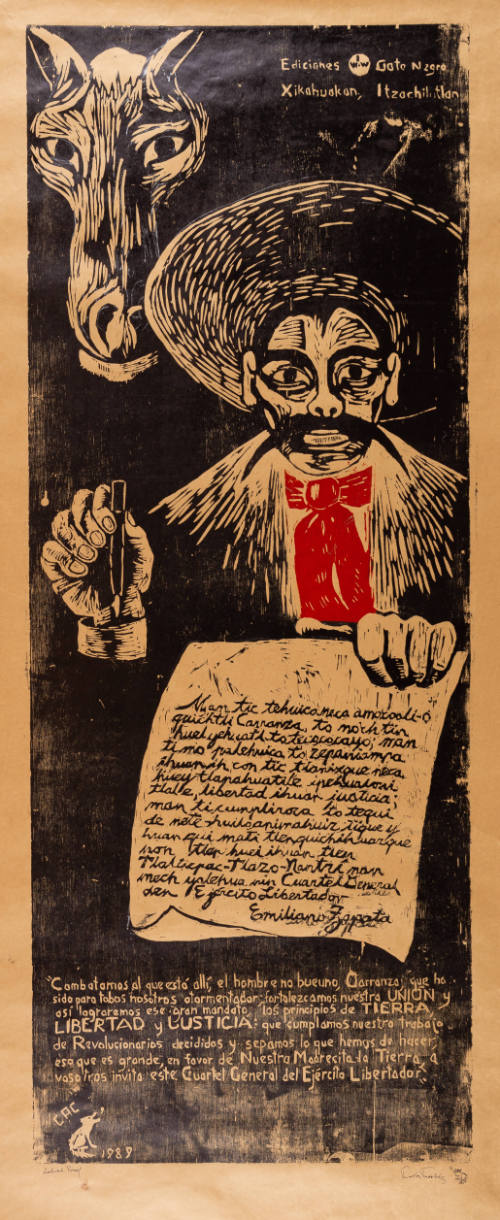 Ediciones Gato Negro
Xikahuakan, Itzachilatlan
Nuan tic tehuicaneca amo
quichtli Carranza, to noch tin
huel yehuatl to man
timo palehuica to zepaniampa
ihuan ih con tic tlanizque neca
huey tlanahuatile
tlalle, libertad ihuan justicia;
man ti cumpliroca to tequi
de
huan qui mati tlen quichihuazque
tlen huei ihuan tlen
Tlaltecpac-Tlazo-Nantzi man
mech nin Cuartel General
den Ejército Libertador
Emiliano Zapata
"Combatamos al que está allí, el hombre no bueuno, Carranza; que ha
sido para todos nosotros atormentador; fortalezcamos nuestra UNION y
así lograremos ese gran mandato, los principios de TIERRA,
LIBERTAD y JUSTICIA: que cumplamos nuestro trabajo
de Revolucionarios decididos y sepamos lo que hemos de hacer,
eso que es grande, en favor de Nuestra Madrecita la Tierra, a
vosotros invita este Cuartel General del Ejército Libertador"
CPC
1989